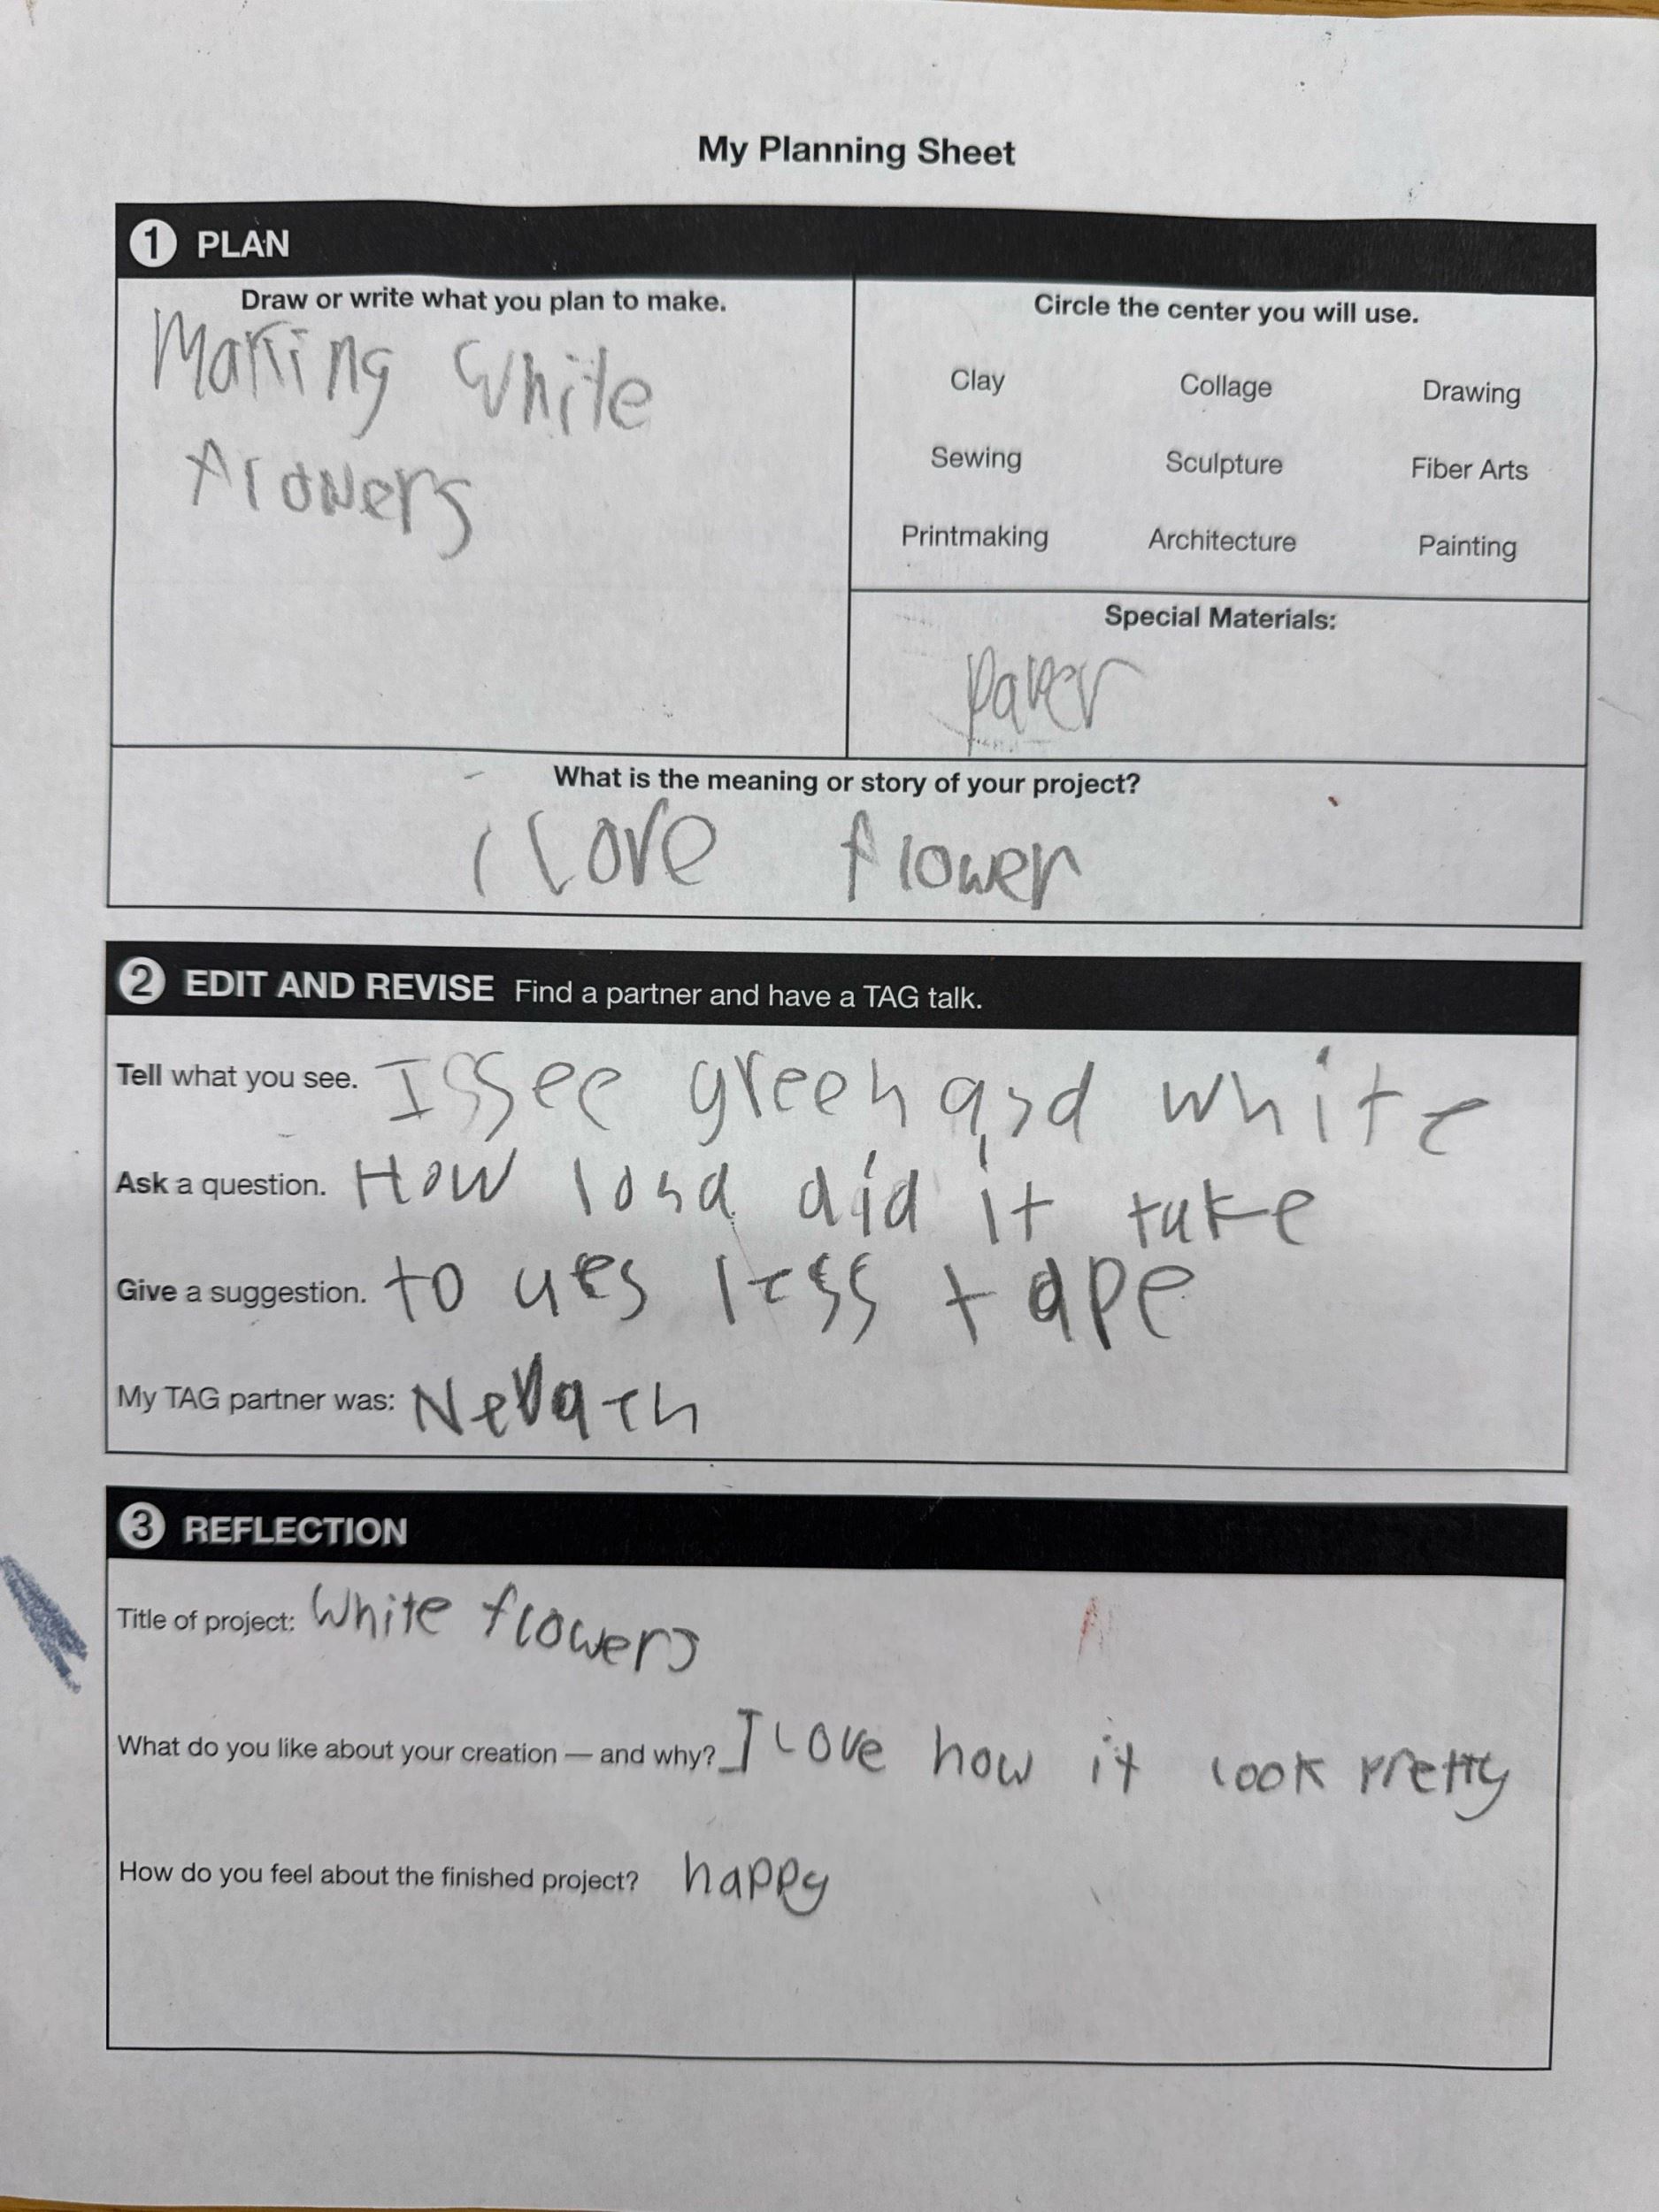 My Planning Sheet
1 PLAN
Draw or write what you plan to make.
Making white
flowers
Circle the center you will use.
Clay Collage Drawing
Sewing Sculpture Fiber Arts
Printmaking Architecture Painting
Special Materials:
Paper
What is the meaning or story of your project?
I Love flower
2 EDIT AND REVISE Find a partner and have a TAG talk.
Tell what you see. I ssee green and white
Ask a question. How long did it take
Give a suggestion. to ues less tape
My TAG partner was:
3 REFLECTION
Title of project: White flowers
What do you like about your creation — and why? I Love how it look pretty
How do you feel about the finished project? happy